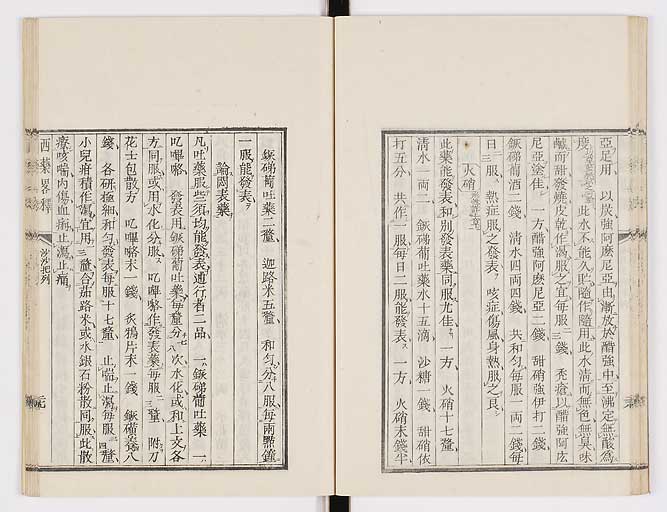 亞足用 以炭強阿摩尼亞由漸放於醋強中至沸定無酸爲
度 此水不能久貯隨作隨用此水清而無色無臭味
鹹而甜發燒皮乾作渴服之宜每服三錢 禿瘡以醋強阿
尼亞塗佳 一方醋強阿摩尼亞二錢 甜硝強伊打二錢
鐝碲葡酒二錢 清水四両四錢 共和勻每服一両二錢每
日三服 熱症服之發表 咳症傷風身熱服之良
火硝
此藥能發表和別發表藥同服尤佳 一方 火硝十七釐
清水一両二 鐝碲葡吐藥水十五滴 沙糖一錢 甜硝依
打五分 共作一服每日二服能發表 一方 火硝末錢半
鐝碲葡吐藥二釐 迦路米五釐 和勻分八服每兩點鐘
一服能發表
論悶表藥
凡吐藥服些須均能發表通行者二品 一鐝碲葡吐藥 一
叱嗶咯 發表用鐝碲葡吐藥每釐分十七八次水化或和上文各
方同服或用水化分服 叱嗶咯作發表藥每服二三釐 附
花士包散方 叱嗶咯末一錢 炙鴉片末一錢 八
錢 各研極細和勻發表每服十七釐 止喘止瀉每服三四釐
小兒疳積作瀉宜用三釐合茄路米或水銀石粉散同服此散
療咳喘內傷血痢止瀉止痛
西藥畧釋